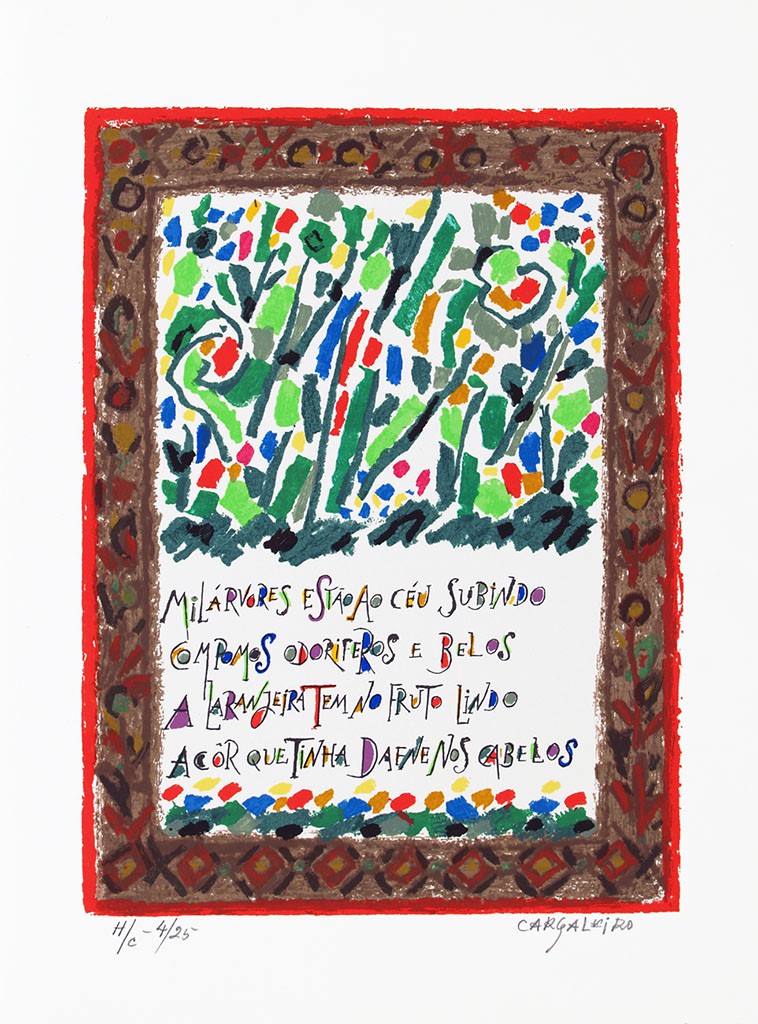 MIL ÁRVORES ESTÃO AO CÉU SUBINDO
COM POMOS ODORIFEROS E BELOS
A LARANJEIRA TEM NO FRUTO LINDO
A CÔR QUE TINHA DAFNE NOS CABELOS
H/c - 4/25
CARGALEIRO